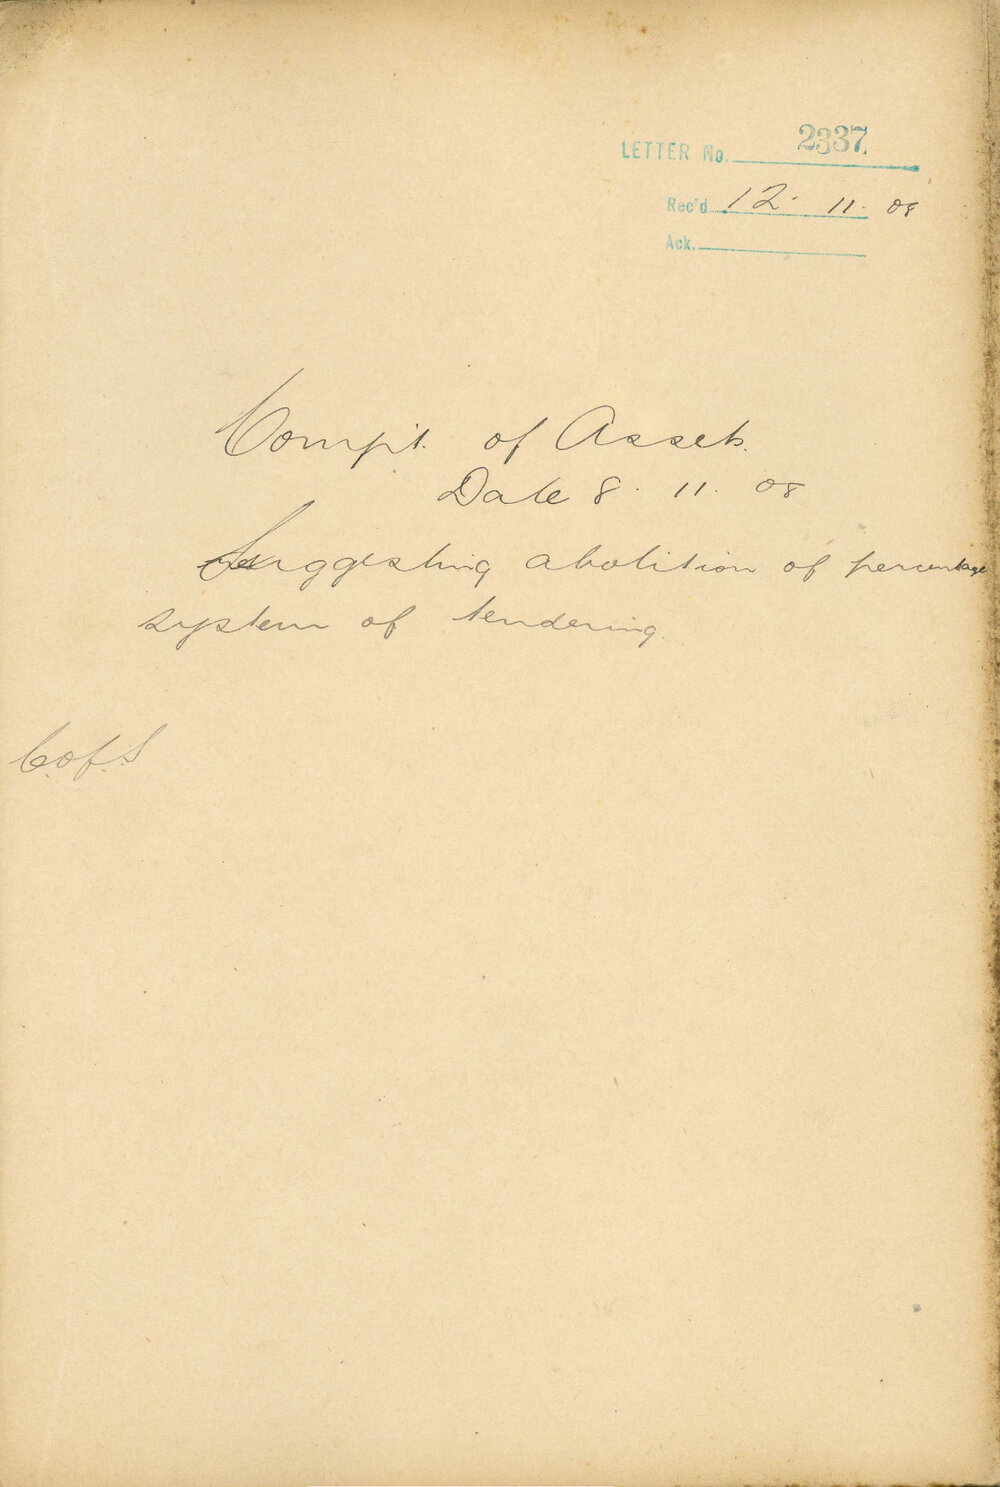 LETTER No. 2337
Rec'd 12. 11. 08
Ack.
Compt. of Assets.
Date 8. 11. 08
Suggesting abolition of percentage
system of tendering.
C.of.S